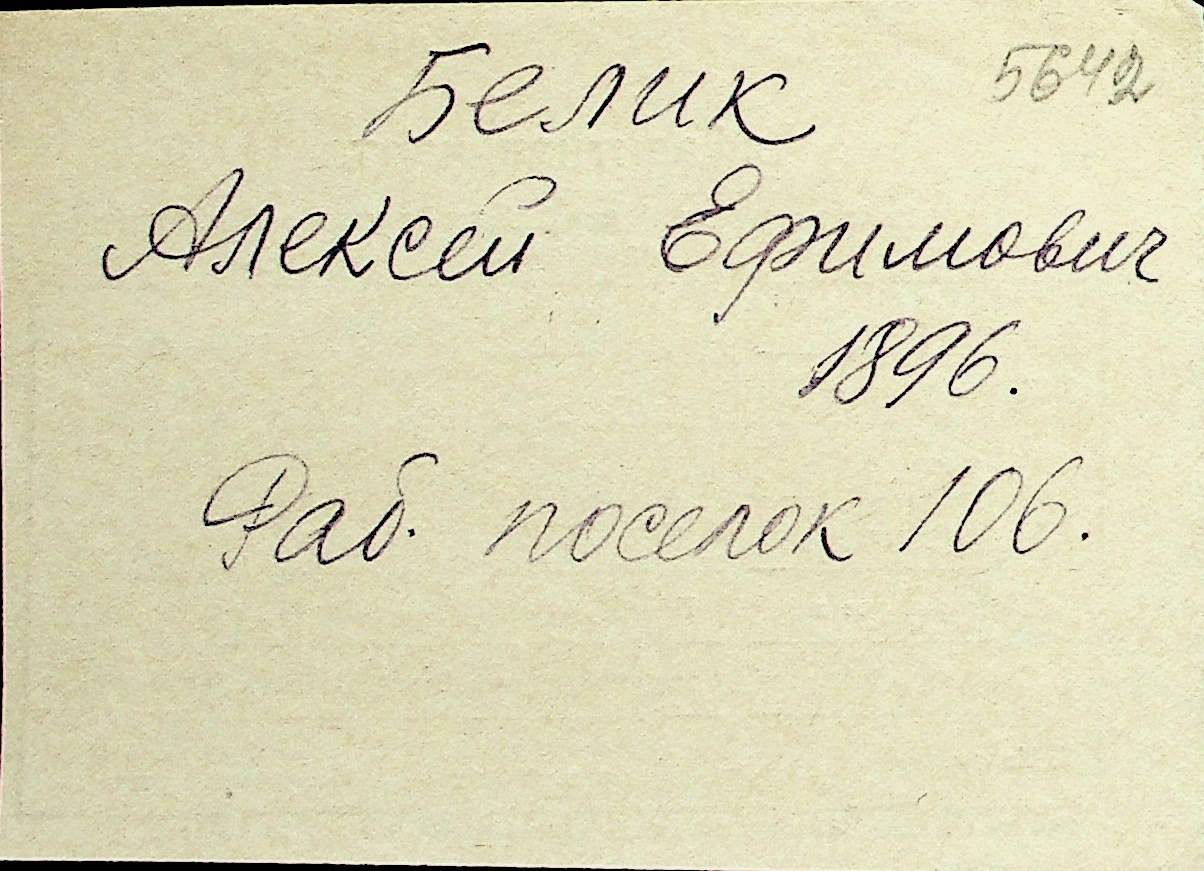 5642
Белик
Алексей Ефимович
1896.
Раб. поселок 106.